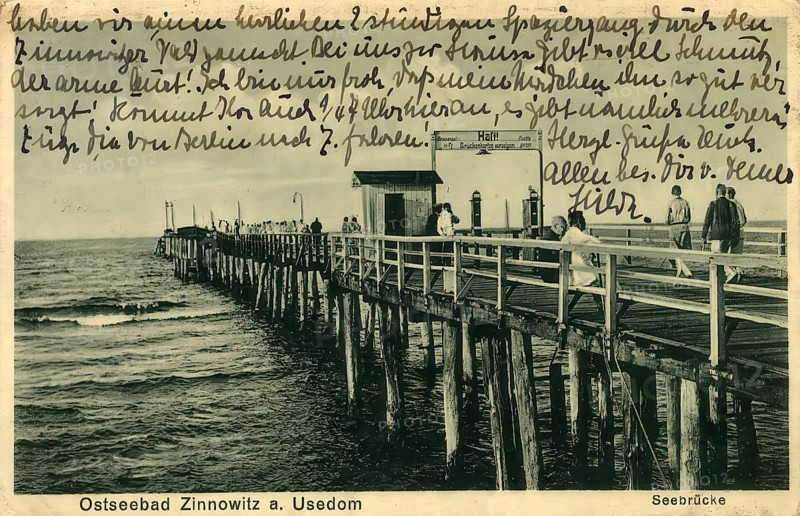 haben wir einen herrlichen 2 stündigen Spaziergang durch den
Zinnowitzer Wald gemacht. Bei uns zu Hause gibt es viel Schmutz,
der arme Kurt! Ich bin nur froh, daß mein Mädchen ihn so gut ver
sorgt! Kommt Ihr auch 1/47 Uhr hier an, es gibt nämlich mehrere
Züge die von Berlin nach Z. fahren. Herzl. Grüße
allen bes. Dir v. Deiner
Hilde.
Halt!
Brückenkarten vorzeigen
PHOTO12
Ostseebad Zinnowitz a. Usedom
Seebrücke